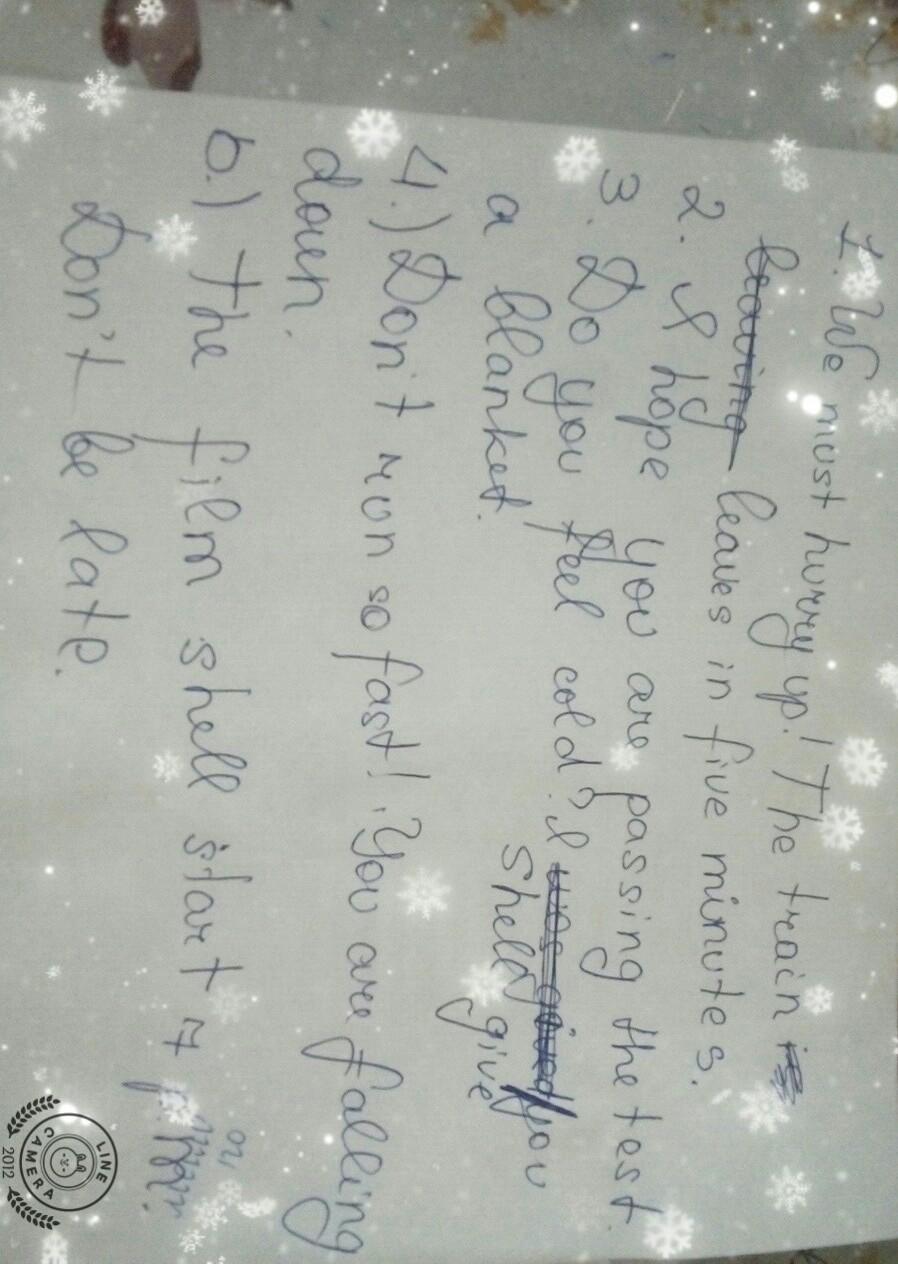 1. We must hurry up! The train
leaves in five minutes.
2. I hope you are passing the test.
3. Do you feel cold? I you
shell give
a blanket.
4.) Don't run so fast! You are falling
down.
6.) The film shell start 7
Don't be late.
LINE CAMERA
2012